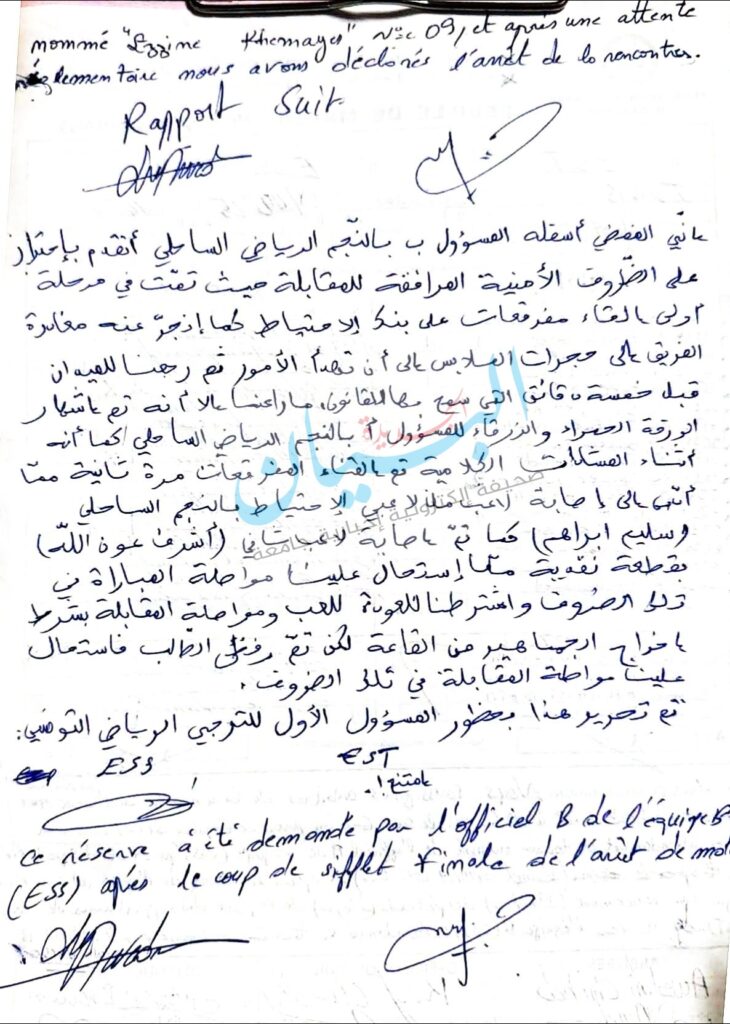 nommé "Ezzine Khemayes" N°= 09, et après une attente
réglementaire nous avons déclarés l'arrêt de la rencontre.
Rapport Suit.
إنّي الممضي أسفله المسؤول ب بالنّجم الرياضي الساحلي أتقدم بإحتراز
على الظّروف الأمنية المرافقة للمقابلة حيث تمّت في مرحلة
أولى إلقاء مفرقعات على بنك الاحتياط كما إنجرّ عنه مغادرة
الفريق إلى حجرات الملابس إلى أن تهدأ الأمور ثم رجعنا للميدان
قبل خمسة دقائق التي سمح بها القانون إلا أنه تم إشهار
الورقة الحمراء والزرقاء للمسؤول أ بالنجم الرياضي الساحلي كما أنه
أثناء المشادات الكلامية تم إلقاء المفرقعات مرة ثانية ممّا
أدّى إلى إصابة لاعب الاحتياط بالنجم الساحلي
(وسليم ابراهم) كما تمّ إصابة لاعب ثاني (أشرف عون الله)
بقطعة نقدية ممّا إستحال علينا مواصلة المباراة في
تلك الظروف واشترطنا للعودة للعب ومواصلة المقابلة بشرط
إخراج الجماهير من القاعة لكن تمّ رفض الطّلب فاستحال
علينا مواصلة المقابلة في تلك الظروف.
تم تحرير هذا بحضور المسؤول الأول للترجي الرياضي التونسي:
ESS EST
إمتنع.
ce réserve à été demande par l'officiel B de l'équipe B
(ESS) après le coup de sifflet finale de l'arrêt de
البيان
الجديدة
صحيفة إلكترونية إخبارية جامعة